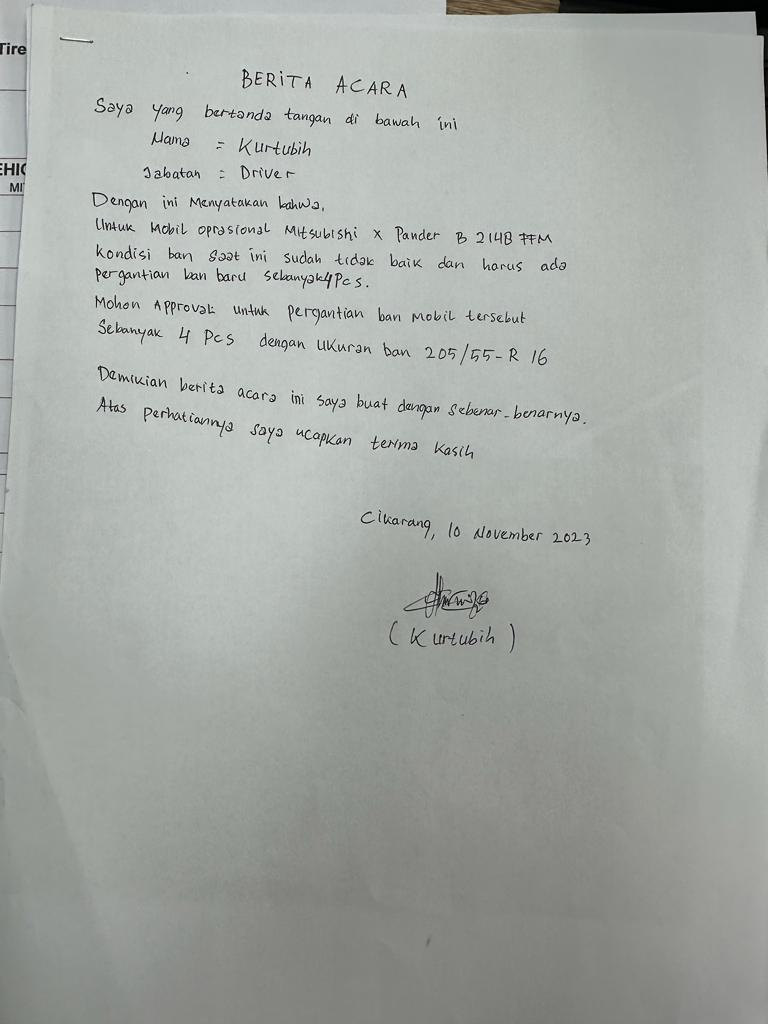 Tire
EHIC
MI
BERITA ACARA
Saya yang bertanda tangan di bawah ini
Nama = Kurtubih
Jabatan = Driver
Dengan ini Menyatakan bahwa,
Untuk Mobil oprasional Mitsubishi X Pander B 2148 FFM
Kondisi ban saat ini sudah tidak baik dan harus ada
pergantian ban baru sebanyak 4 Pcs.
Mohon Approval untuk pergantian ban Mobil tersebut
Sebanyak 4 Pcs dengan Ukuran ban 205/55-R 16
Demikian berita acara ini saya buat dengan sebenar-benarnya.
Atas perhatiannya saya ucapkan terima kasih
Cikarang, 10 November 2023
(Kurtubih)